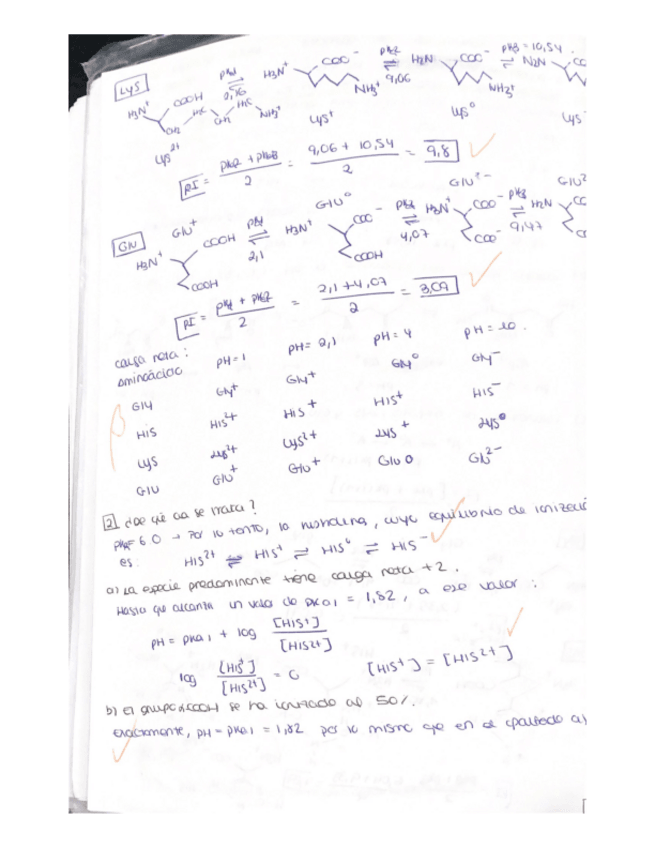 Lys
H3N+ COOH CH2 H2C CH2 NH3+ pka1 ⇌ 2,16 H3N+ COO- NH3+ pka2 ⇌ 9,06 H2N COO- NH3+ pka3 = 10,54 ⇌
Lys2+ Lys+ Lys0 Lys
PI = pka2 + pka3 / 2 = 9,06 + 10,54 / 2 = 9,8
Glu
Glu+ Glu0 Glu2- Glu2
H3N+ COOH COOH pka1 ⇌ 2,1 H3N+ COO- COOH pka2 ⇌ 4,07 H3N+ COO- COO- pka3 ⇌ 9,47 H2N
PI = pka1 + pka2 / 2 = 2,1 + 4,07 / 2 = 3,09
carga neta:
aminoácido pH=1 pH=2,1 pH=4 pH=10
Gly Gly+ Gly+ Gly0 Gly-
His His2+ His+ His+ His-
Lys Lys2+ Lys2+ Lys+ Lys0
Glu Glu+ Glu+ Glu0 Glu2-
2 ¿de qué aa se trata?
pka=6.0 → Por lo tanto, la histidina, cuyo equilibrio de ionizaci
es: His2+ ⇌ His+ ⇌ His0 ⇌ His-
a) La especie predominante tiene carga neta +2.
Hasta que alcanza un valor de pka1 = 1,82, a ese valor:
pH = pka1 + log [His+] / [His2+]
log [His+] / [His2+] = 0 [His+] = [His2+]
b) El grupo αCOOH se ha ionizado al 50%.
exactamente, pH = pka1 = 1,82 por lo mismo que en el apartado a)